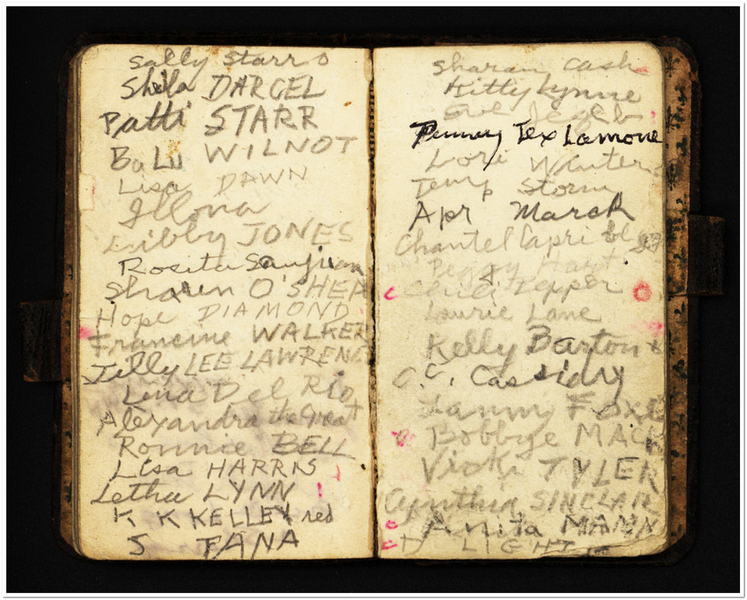 Sally Starr
Shila DARCEL
Patti STARR
BaLu WILNOT
Lisa DAWN
Illona
Libby JONES
Rosita Sanjuan
Sharen O'SHEA
Hope DIAMOND
Francine WALKER
Jilly LEE LAWRENC
Lina Del Rio
Alexandra the Great
Ronnie BELL
Lisa HARRIS
Letha LYNN
K K KELLEY red
S TANA
Sharon Cash
Kitty Lynne
Penney Tex Lamone
Lori Winters
Temp Storm
Apr March
Chantel Capri
Peggy Hart
Pepper
Laurie Lane
Kelly Barton
C.C. Cassidy
Fanny FOXE
Bobbye MACK
Vicki TYLER
Cynthia SINCLAIR
Anita MANN
D LIGHT